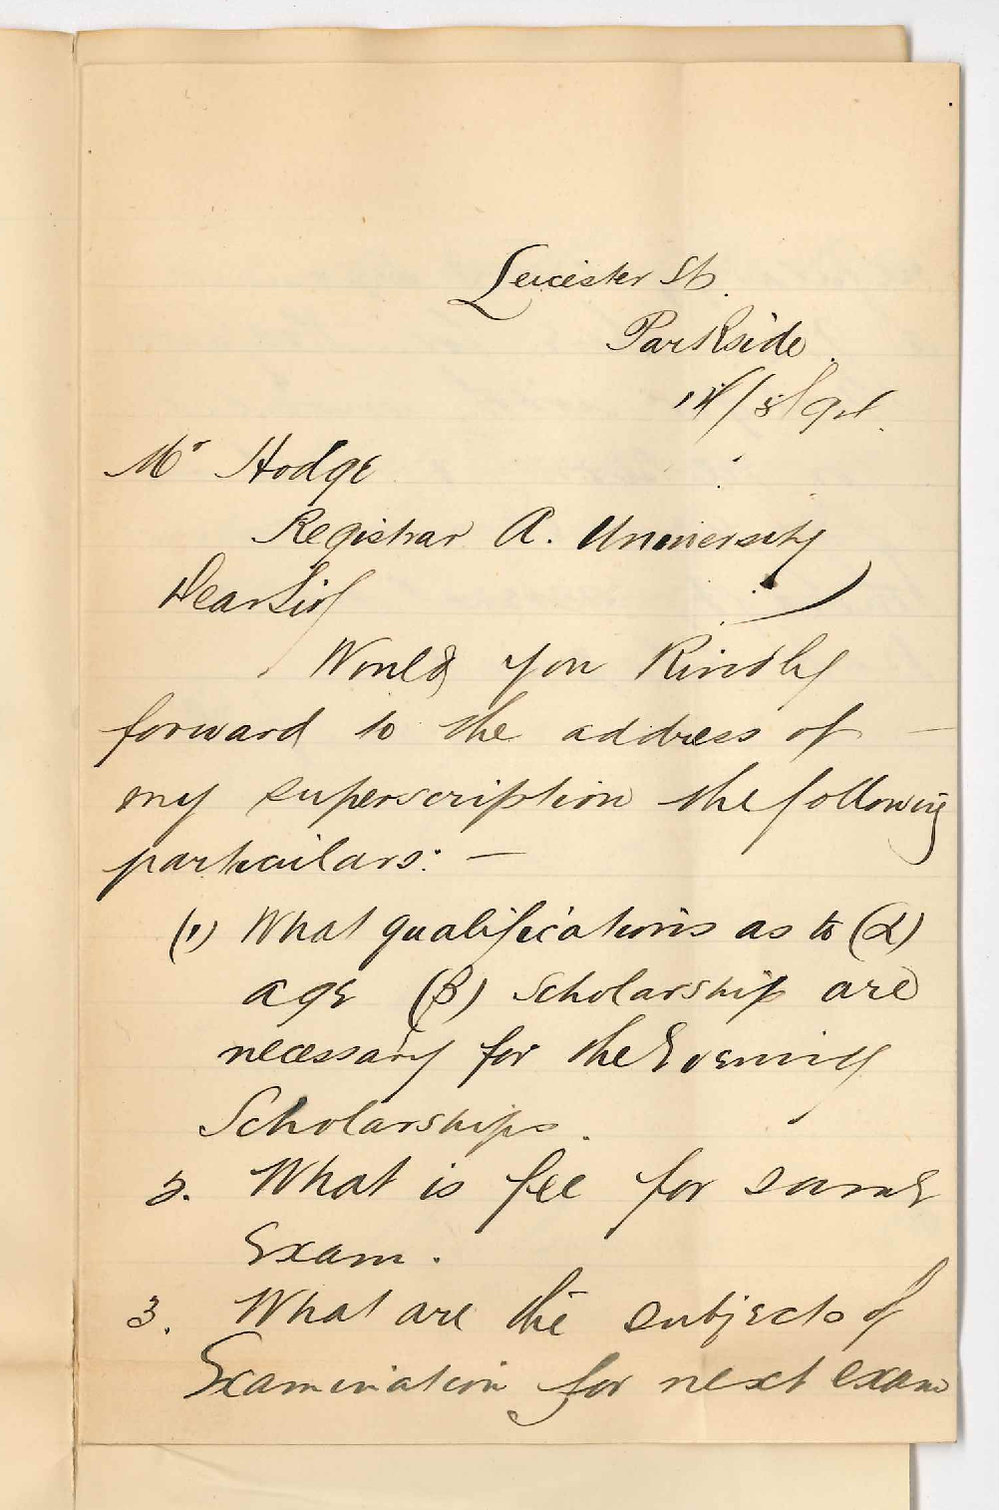 Leicester St.
Parkside.
Mr Hodge
Registrar A. University
Dear Sir
Would you kindly
forward to the address of —
my superscription the following
particulars: —
(1) What qualifications as to (α)
age (β) Scholarship are
necessary for the Evening
Scholarships.
2. What is fee for same
Exam.
3. What are the subjects of
Examination for next exam